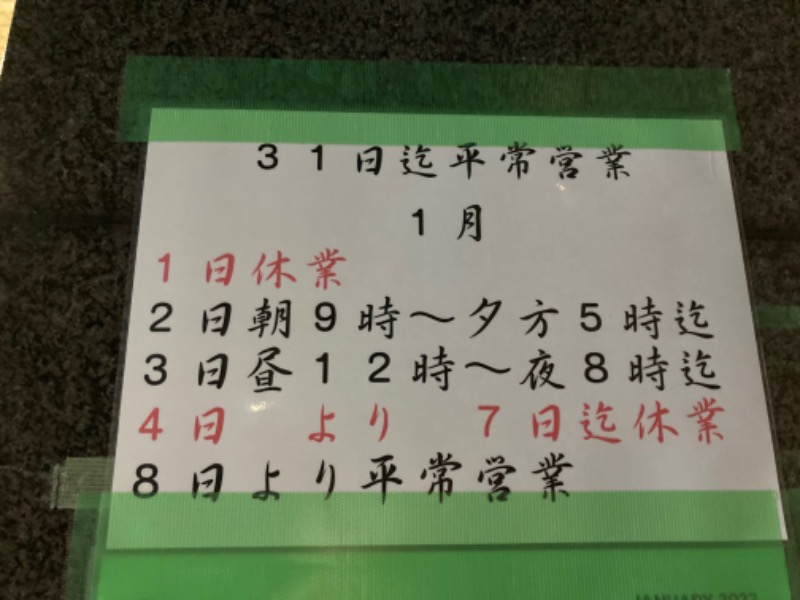 31日迄平常営業
1月
1日休業
2日朝9時～夕方5時迄
3日昼12時～夜8時迄
4日 より 7日迄休業
8日より平常営業